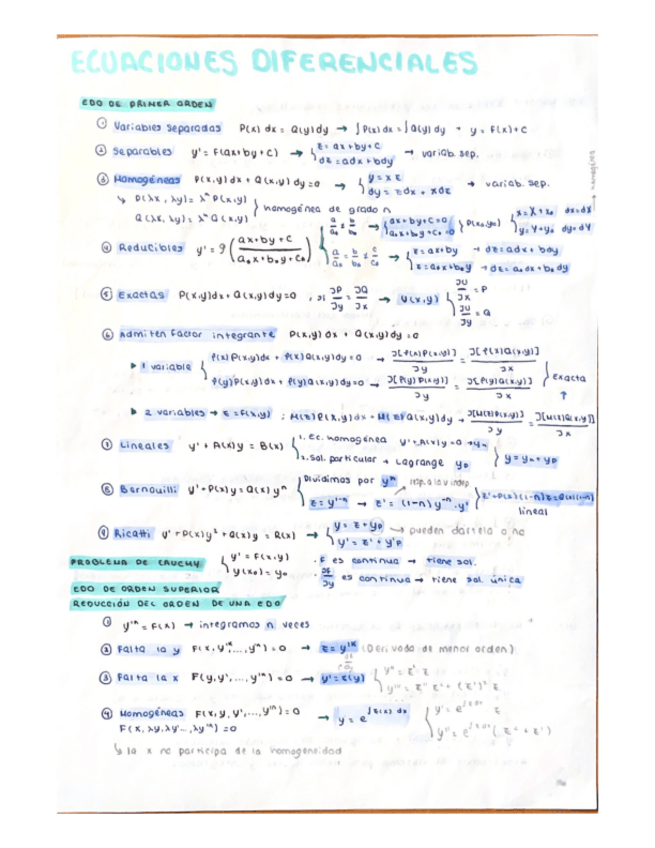 ECUACIONES DIFERENCIALES
EDO DE PRIMER ORDEN
① Variables separadas P(x) dx = Q(y) dy → ∫P(x) dx = ∫Q(y) dy → y = F(x)+C
② Separables y' = F(ax+by+c) → { z = ax+by+c
dz = adx + bdy → variab. sep.
③ Homogéneas P(x,y) dx + Q(x,y) dy = 0 → { y = x z
dy = zdx + xdz → variab. sep.
↳ P(λx, λy) = λⁿ P(x,y)
Q(λx, λy) = λⁿ Q(x,y) } homogénea de grado n
④ Reducibles y' = g ( ax+by+c / a₀x+b₀y+c₀ )
a/a₀ ≠ b/b₀ → { ax+by+c=0
a₀x+b₀y+c₀=0 } P(x₀,y₀) { x = X+x₀ dx = dX
y = Y+y₀ dy = dY
→ homogénea
a/a₀ = b/b₀ ≠ c/c₀ → { z = ax+by → dz = adx + bdy
z = a₀x+b₀y → dz = a₀dx + b₀dy
⑤ Exactas P(x,y)dx + Q(x,y)dy = 0 , si ∂P/∂y = ∂Q/∂x → U(x,y) { ∂U/∂x = P
∂U/∂y = Q
⑥ Admiten factor integrante P(x,y) dx + Q(x,y) dy = 0
▸ 1 variable
{ f(x)P(x,y)dx + f(x)Q(x,y)dy = 0 → ∂[f(x)P(x,y)]/∂y = ∂[f(x)Q(x,y)]/∂x
f(y)P(x,y)dx + f(y)Q(x,y)dy = 0 → ∂[f(y)P(x,y)]/∂y = ∂[f(y)Q(x,y)]/∂x } exacta
▸ 2 variables → z = F(x,y) ; M(z)P(x,y)dx + M(z)Q(x,y)dy → ∂[M(z)P(x,y)]/∂y = ∂[M(z)Q(x,y)]/∂x
⑦ Lineales y' + A(x)y = B(x) { 1. Ec. homogénea y' + A(x)y = 0 → yₕ
2. Sol. particular → Lagrange yₚ } y = yₕ + yₚ
⑧ Bernouilli y' + P(x)y = Q(x)yⁿ { Dividimos por yⁿ
z = y¹⁻ⁿ → z' = (1-n) y⁻ⁿ · y' } z' + P(x)(1-n)z = Q(x)(1-n)
lineal
⑨ Ricatti y' + P(x)y² + Q(x)y = R(x) → { y = z + yₚ → pueden dártela o no
y' = z' + y'ₚ
PROBLEMA DE CAUCHY { y' = F(x,y)
y(x₀) = y₀
· F es continua → tiene sol.
· ∂F/∂y es continua → tiene sol. única
EDO DE ORDEN SUPERIOR
REDUCCIÓN DEL ORDEN DE UNA EDO
① y'ⁿ = F(x) → integramos n veces
② Falta la y F(x, y'ᵏ, ..., yⁿ) = 0 → z = y'ᵏ (Derivada de menor orden)
③ Falta la x F(y, y', ..., y'ⁿ) = 0 → y' = z(y) { y'' = z' z
y''' = z'' z² + (z')² z
④ Homogéneas F(x, y, y', ..., y'ⁿ) = 0 → y = e^∫z(x) dx { y' = e^∫z dx z
y'' = e^∫z dx (z² + z')
F(x, λy, λy', ..., λy'ⁿ) = 0
↳ la x no participa de la homogeneidad